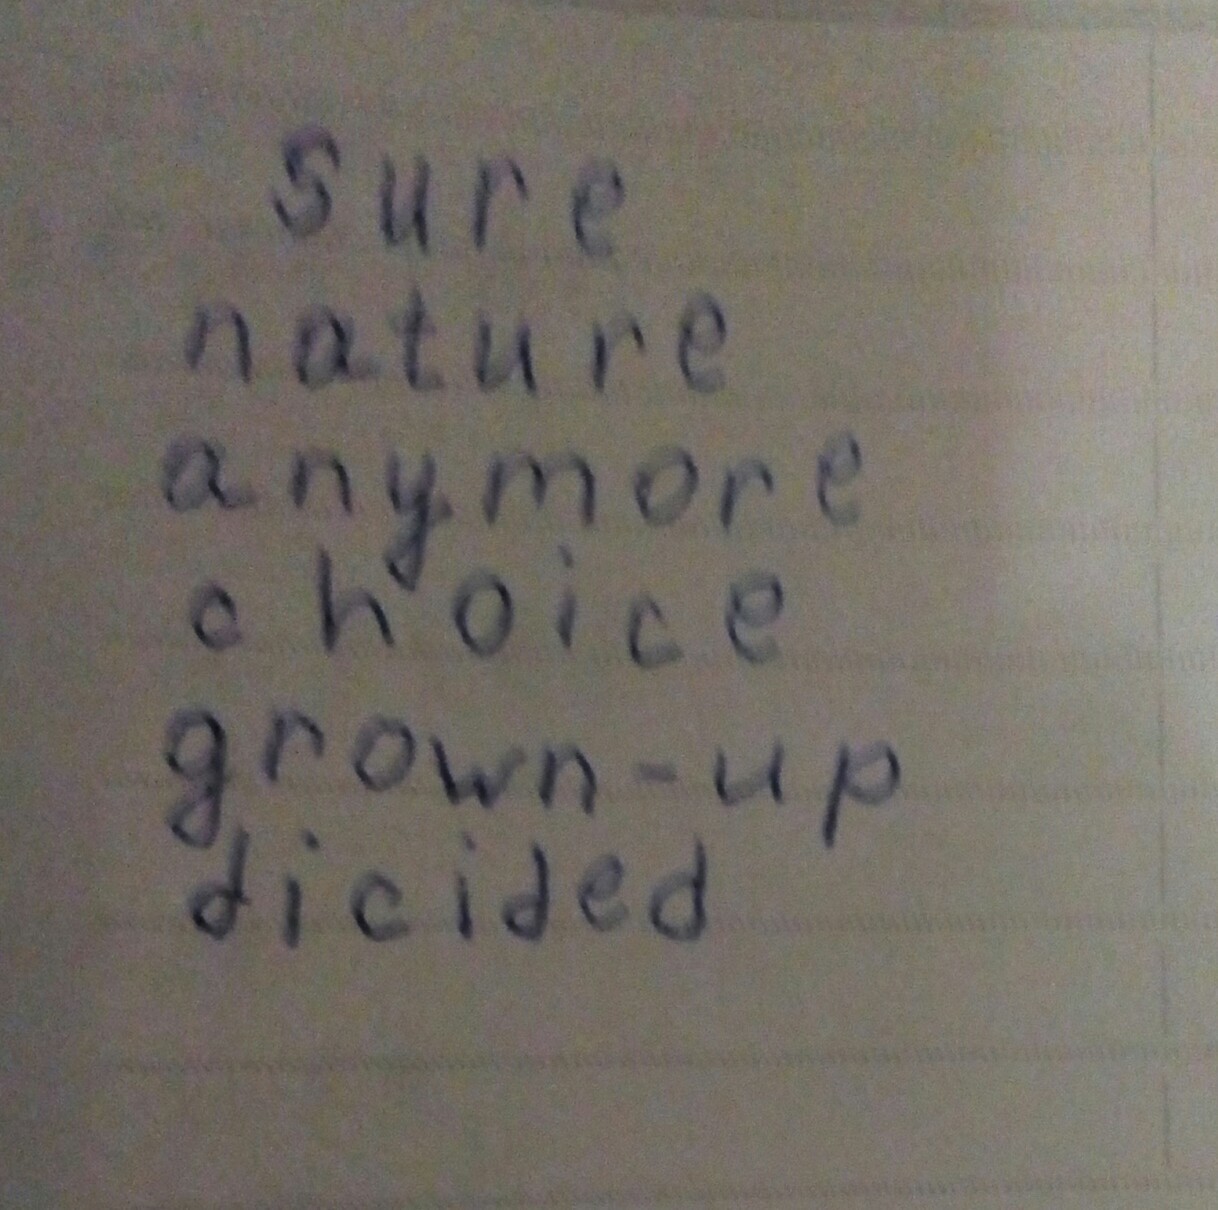 sure
nature
anymore
choice
grown-up
dicided